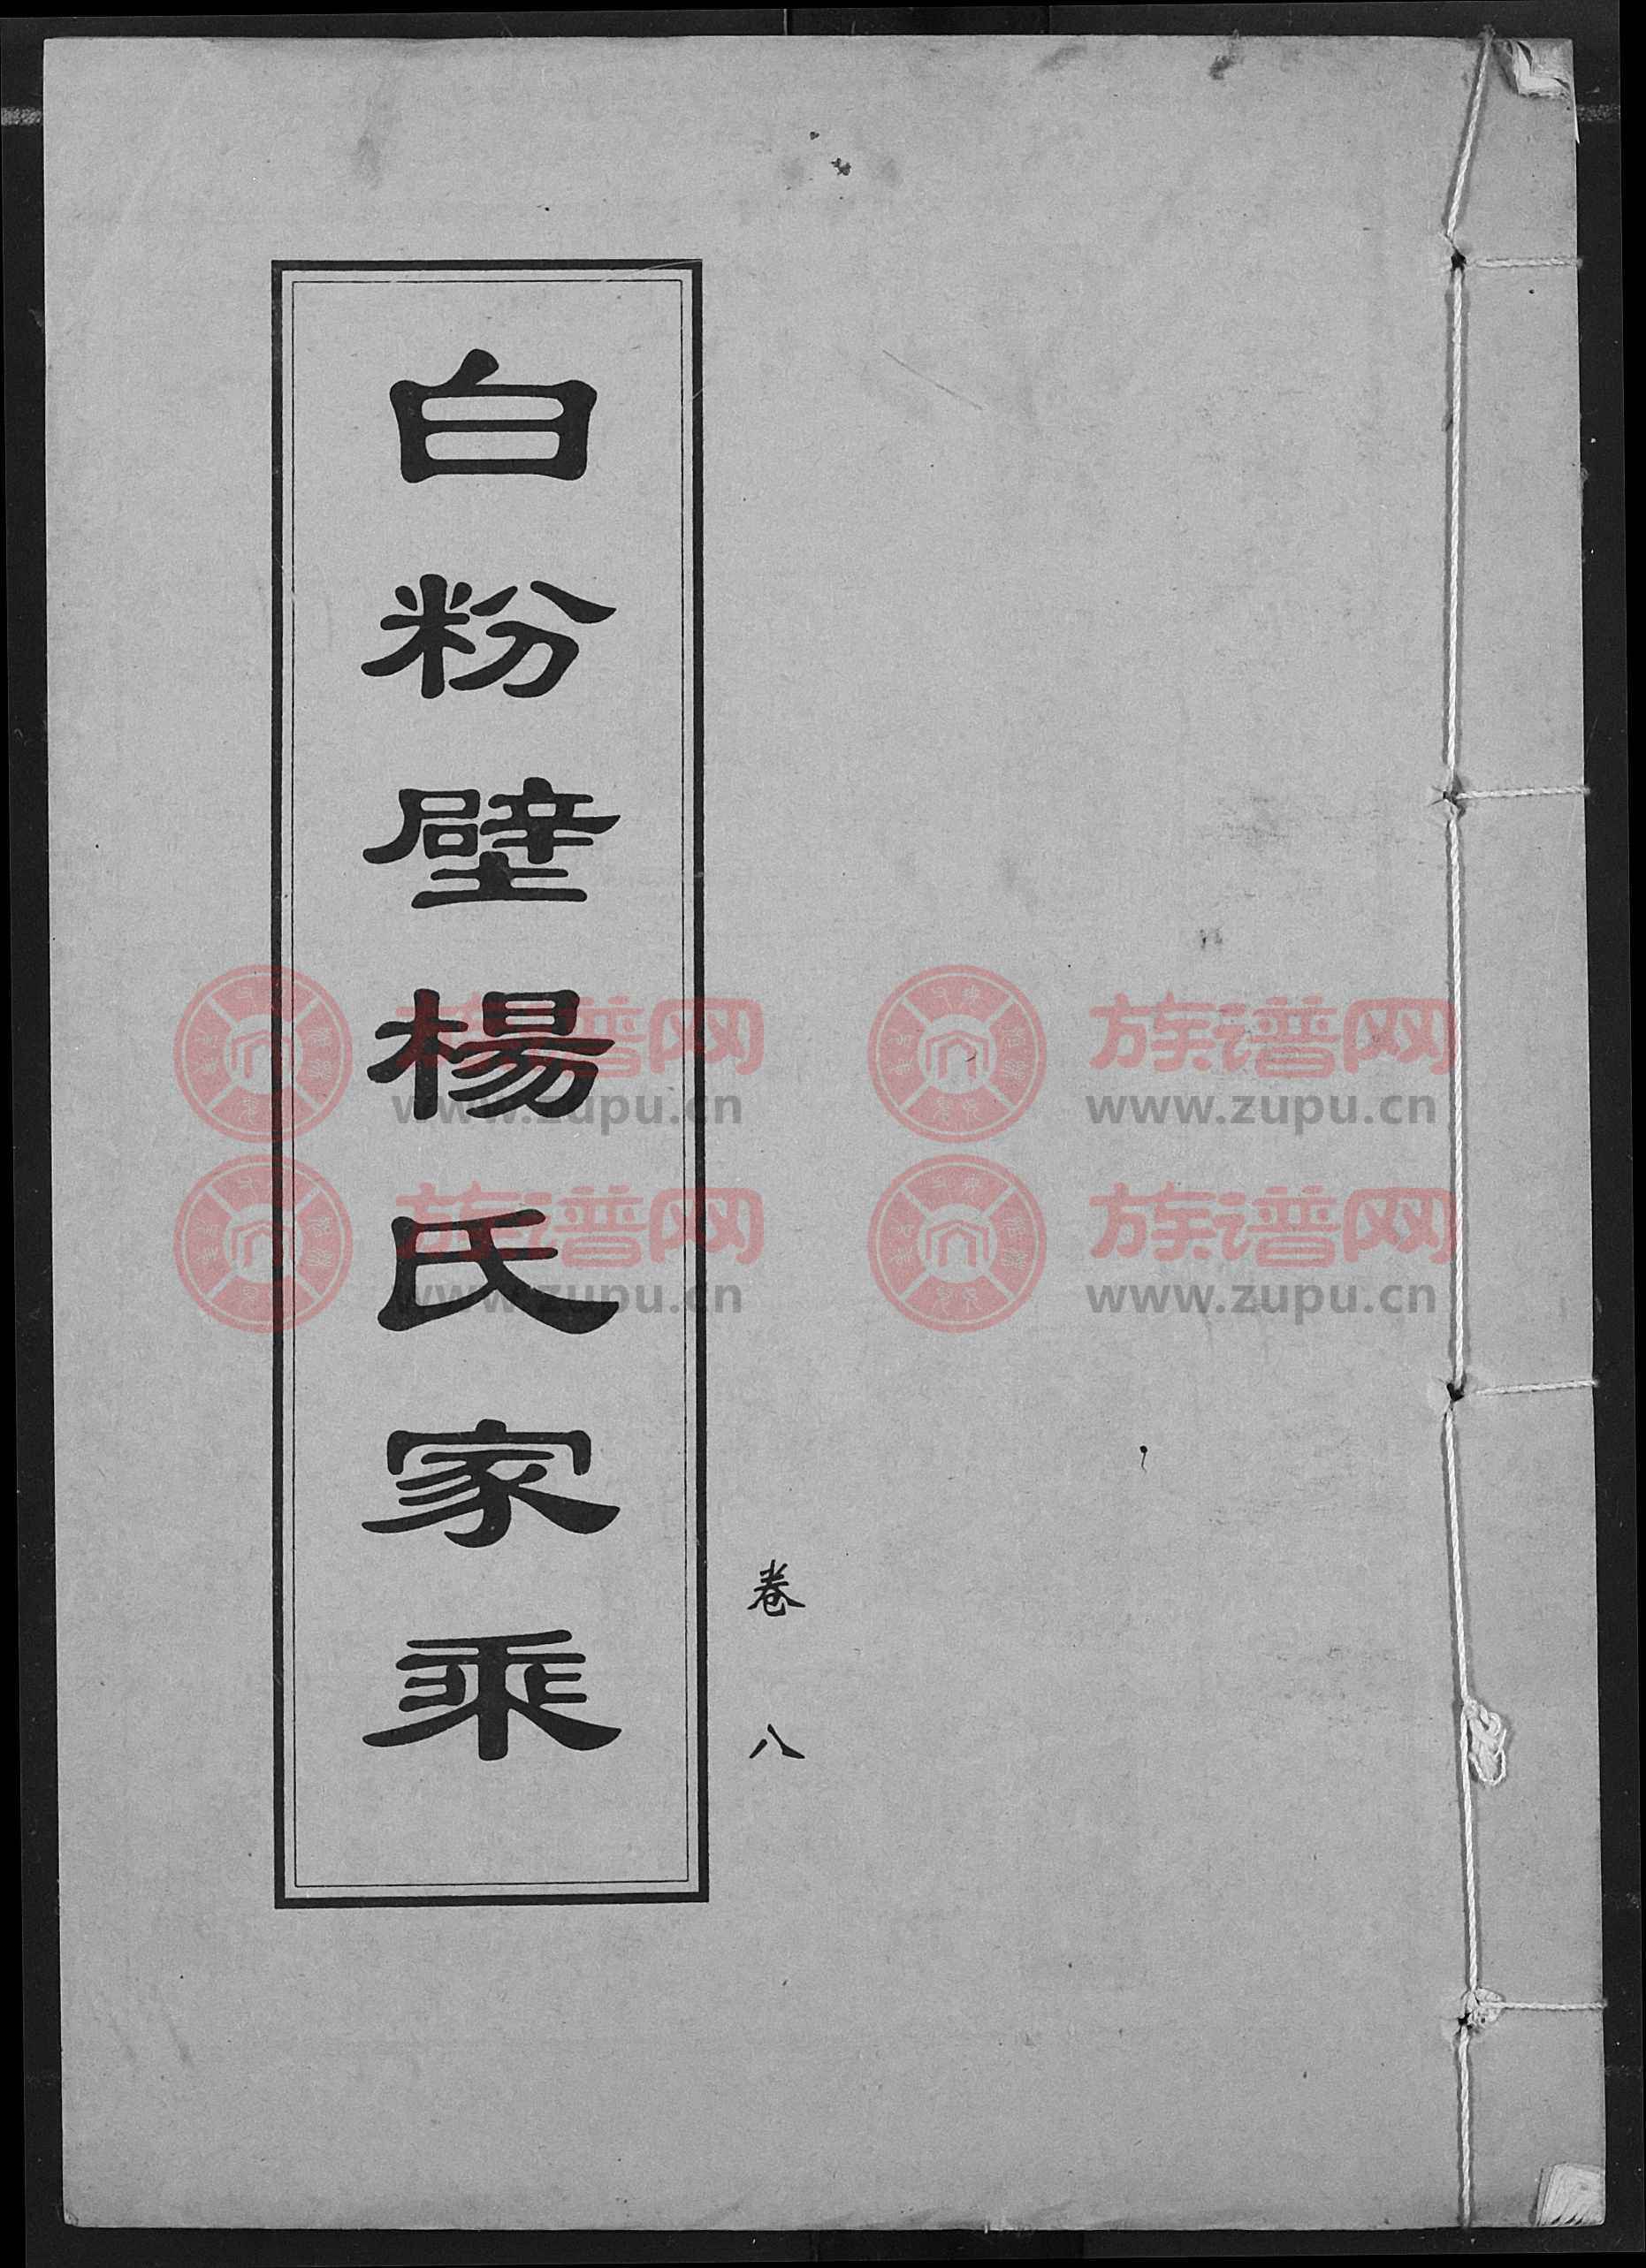 白粉壁楊氏家乘
卷八
族谱网
www.zupu.cn
族谱网
www.zupu.cn
族谱网
www.zupu.cn
族谱网
www.zupu.cn